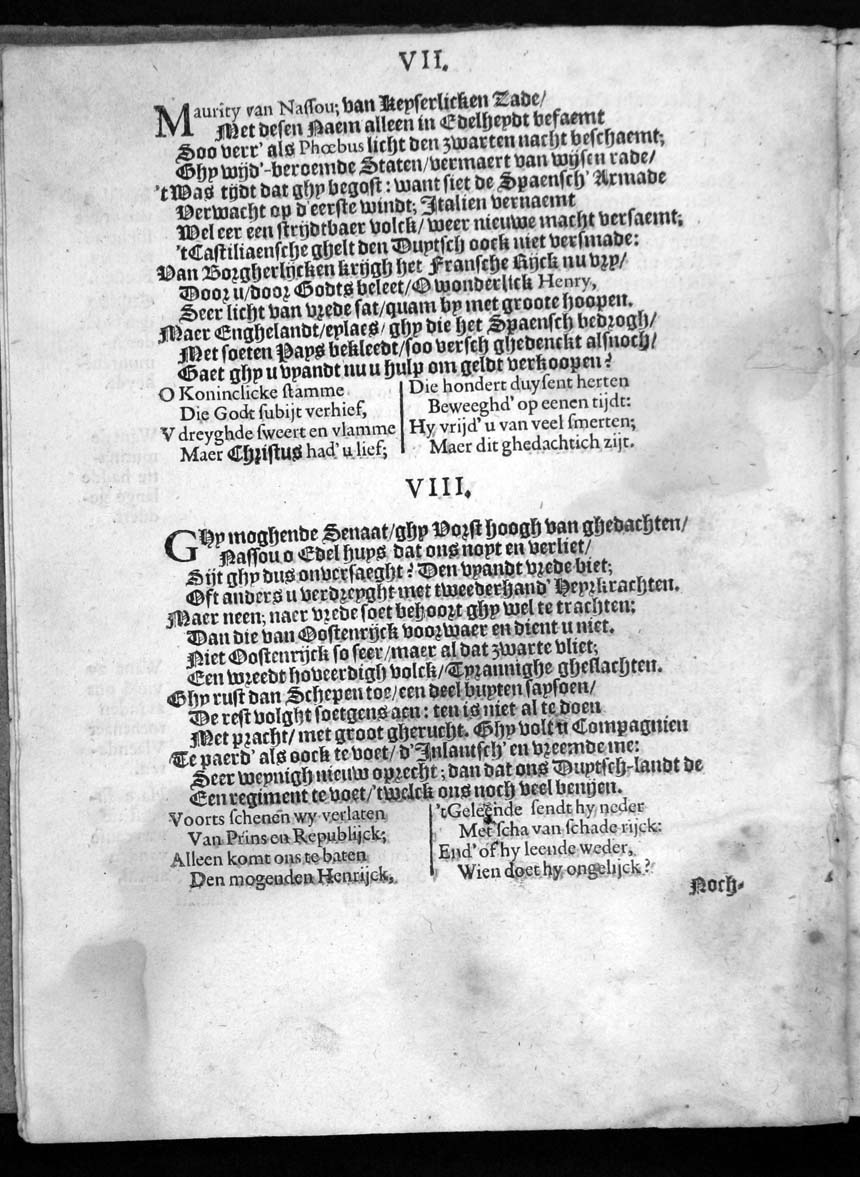 VII.
Maurity van Nassou; van Keyserlicken Zade/
Met desen Naem alleen in Edelheydt befaemt
Soo verr' als Phœbus licht den zwarten nacht beschaemt;
Ghy wijd'-beroemde Staten/vermaert van wijsen rade/
't Was tijdt dat ghy begost: want siet de Spaensch' Armade
Verwacht op d'eerste windt; Italien vernaemt
Wel eer een strijdtbaer volck/ weer nieuwe macht versaemt;
't Castiliaensche ghelt den Duytsch oock niet versmade:
Van Borgherlijcken krijgh het Fransche Rijck nu vry/
Door u/door Godts beleet/O wonderlick Henry,
Seer licht van vrede sat/quam by met groote hoopen.
Maer Enghelandt/eylaes/ ghy die het Spaensch bedrogh/
Met soeten Pays bekleedt/soo versch ghedenckt alsnoch/
Gaet ghy u vyandt nu u hulp om geldt verkoopen?
O Koninclicke stamme
Die Godt subijt verhief,
V dreyghde sweert en vlamme
Maer Christus had' u lief;
Die hondert duysent herten
Beweeghd' op eenen tijdt:
Hy vrijd' u van veel smerten;
Maer dit ghedachtich zijt.
VIII.
Ghy moghende Senaat/ghy Vorst hoogh van ghedachten/
Nassou o Edel huys dat ons noyt en verliet/
Sijt ghy dus onversaeght? Den vyandt vrede biet;
Oft anders u verdreyght met tweederhand' Heyrkrachten.
Maer neen; naer vrede soet behoort ghy wel te trachten:
Dan die van Oostenrijck voorwaer en dient u niet.
Niet Oostenrijck so seer/maer al dat zwarte vliet;
Een wreedt hoveerdigh volck/Tyrannighe gheslachten.
Ghy rust dan Schepen toe/een deel buyten saysoen/
De rest volght soetgens aen: ten is niet al te doen
Met pracht/ met groot gherucht. Ghy volt u Compagnien
Te paerd' als oock te voet/ d'Inlantsch' en vreemde me:
Seer weynigh nieuw oprecht; dan dat ons Duytsch-landt de
Een regiment te voet/'twelck ons noch veel benijen.
Voorts schenen wy verlaten
Van Prins en Republijck;
Alleen komt ons te baten
Den mogenden Henrijck,
't Geleende sendt hy neder
Met scha van schade rijck:
End' of hy leende weder,
Wien doet hy ongelijck?
Noch-